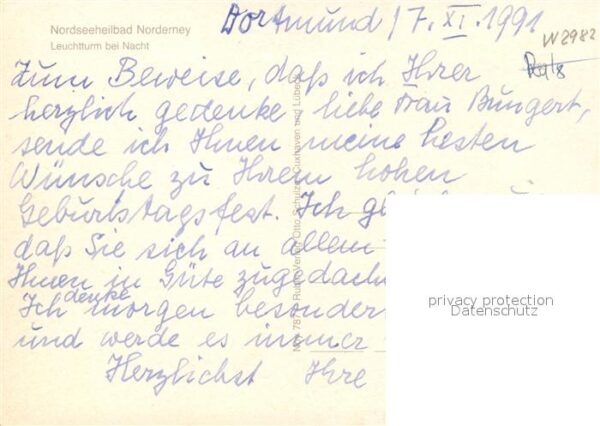 Nordseeheilbad Norderney
Leuchtturm bei Nacht
Dortmund, 17. XI. 1991
W2982
Zum Beweise, daß ich Ihrer
herzlich gedenke, liebe Frau Bungert,
sende ich Ihnen meine besten
Wünsche zu Ihrem hohen
Geburtstagsfest. Ich
daß Sie sich an allem
Ihnen in Güte zugedacht
Ich denke morgen besonders
und werde es immer
Herzlichst Ihre
privacy protection
Datenschutz